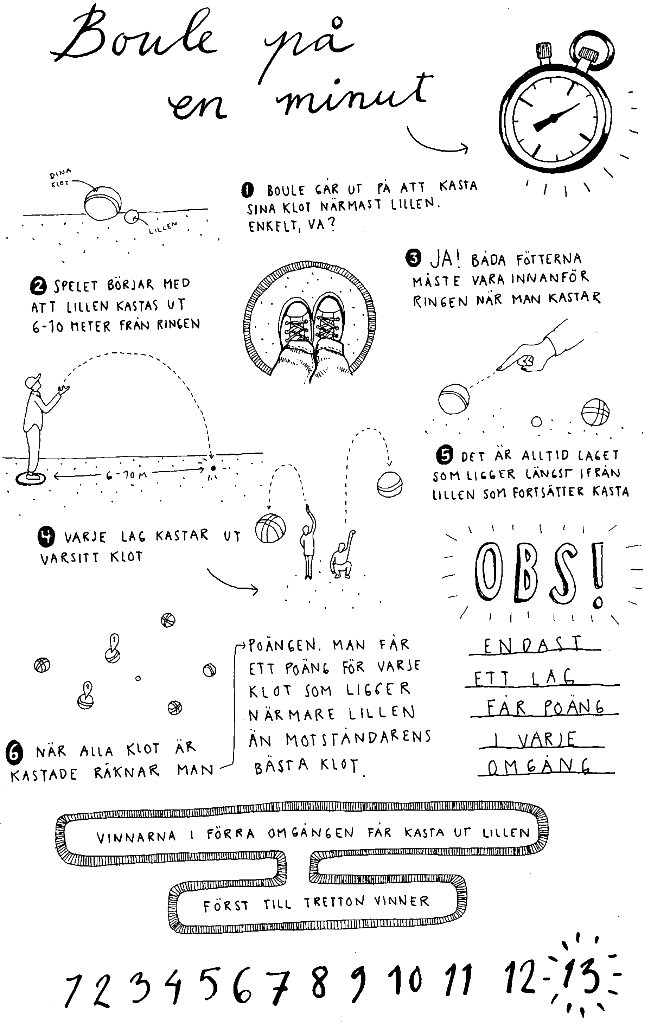 Boule på
en minut
DINA
KLOT
LILLEN
1 BOULE GÅR UT PÅ ATT KASTA
SINA KLOT NÄRMAST LILLEN.
ENKELT, VA?
2 SPELET BÖRJAR MED
ATT LILLEN KASTAS UT
6-10 METER FRÅN RINGEN
3 JA! BÅDA FÖTTERNA
MÅSTE VARA INNANFÖR
RINGEN NÄR MAN KASTAR
6-10 M
4 VARJE LAG KASTAR UT
VARSITT KLOT
5 DET ÄR ALLTID LAGET
SOM LIGGER LÄNGST IFRÅN
LILLEN SOM FORTSÄTTER KASTA
OBS!
ENDAST
ETT LAG
FÅR POÄNG
I VARJE
OMGÅNG
6 NÄR ALLA KLOT ÄR
KASTADE RÄKNAR MAN
POÄNGEN. MAN FÅR
ETT POÄNG FÖR VARJE
KLOT SOM LIGGER
NÄRMARE LILLEN
ÄN MOTSTÅNDARENS
BÄSTA KLOT.
VINNARNA I FÖRRA OMGÅNGEN FÅR KASTA UT LILLEN
FÖRST TILL TRETTON VINNER
1 2 3 4 5 6 7 8 9 10 11 12 13